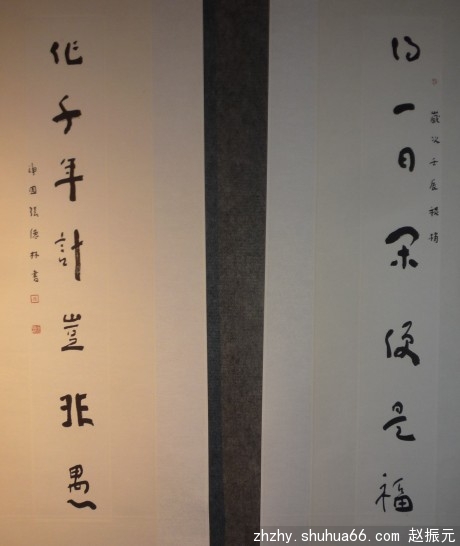 得一日閑便是福
歲次壬辰
作千年計豈非愚
中國張德林書
zhzhy.shuhua66.com 赵振元